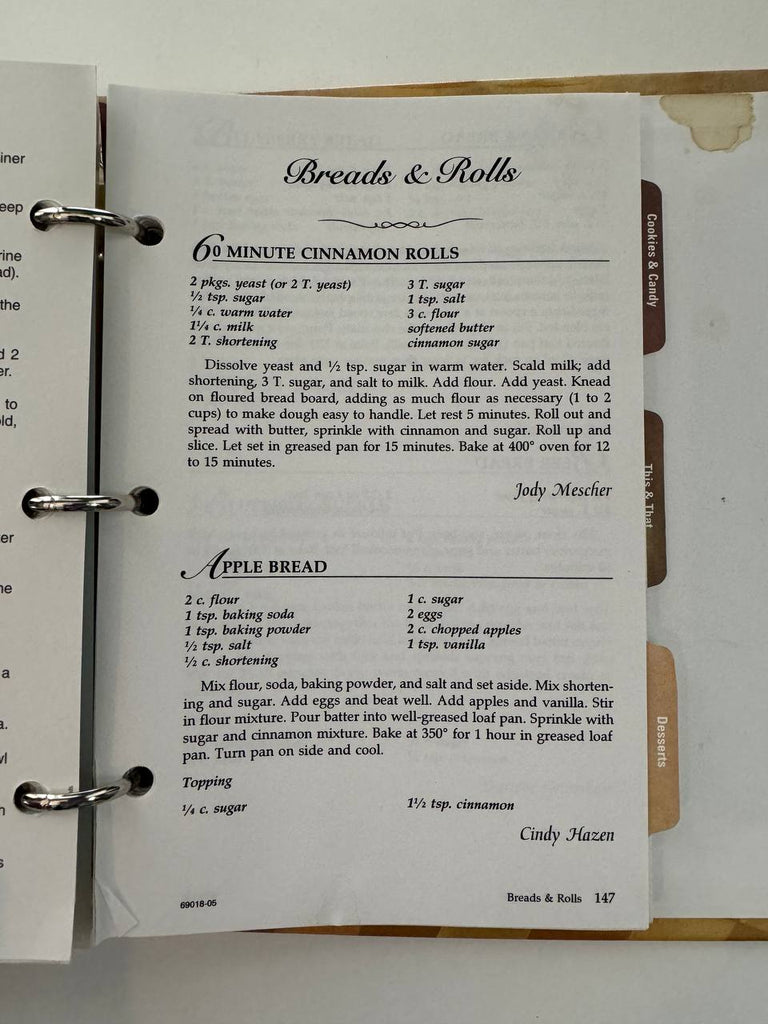 iner
eep
rine
ad).
the
d 2
er.
to
ld,
er
ne
a
a.
wl
n
s
Breads & Rolls
60 MINUTE CINNAMON ROLLS
2 pkgs. yeast (or 2 T. yeast) 3 T. sugar
½ tsp. sugar 1 tsp. salt
¼ c. warm water 3 c. flour
1¼ c. milk softened butter
2 T. shortening cinnamon sugar
Dissolve yeast and ½ tsp. sugar in warm water. Scald milk; add
shortening, 3 T. sugar, and salt to milk. Add flour. Add yeast. Knead
on floured bread board, adding as much flour as necessary (1 to 2
cups) to make dough easy to handle. Let rest 5 minutes. Roll out and
spread with butter, sprinkle with cinnamon and sugar. Roll up and
slice. Let set in greased pan for 15 minutes. Bake at 400° oven for 12
to 15 minutes.
Jody Mescher
APPLE BREAD
2 c. flour 1 c. sugar
1 tsp. baking soda 2 eggs
1 tsp. baking powder 2 c. chopped apples
½ tsp. salt 1 tsp. vanilla
½ c. shortening
Mix flour, soda, baking powder, and salt and set aside. Mix shorten-
ing and sugar. Add eggs and beat well. Add apples and vanilla. Stir
in flour mixture. Pour batter into well-greased loaf pan. Sprinkle with
sugar and cinnamon mixture. Bake at 350° for 1 hour in greased loaf
pan. Turn pan on side and cool.
Topping
¼ c. sugar 1½ tsp. cinnamon
Cindy Hazen
69018-05 Breads & Rolls 147
Cookies & Candy
This & That
Desserts